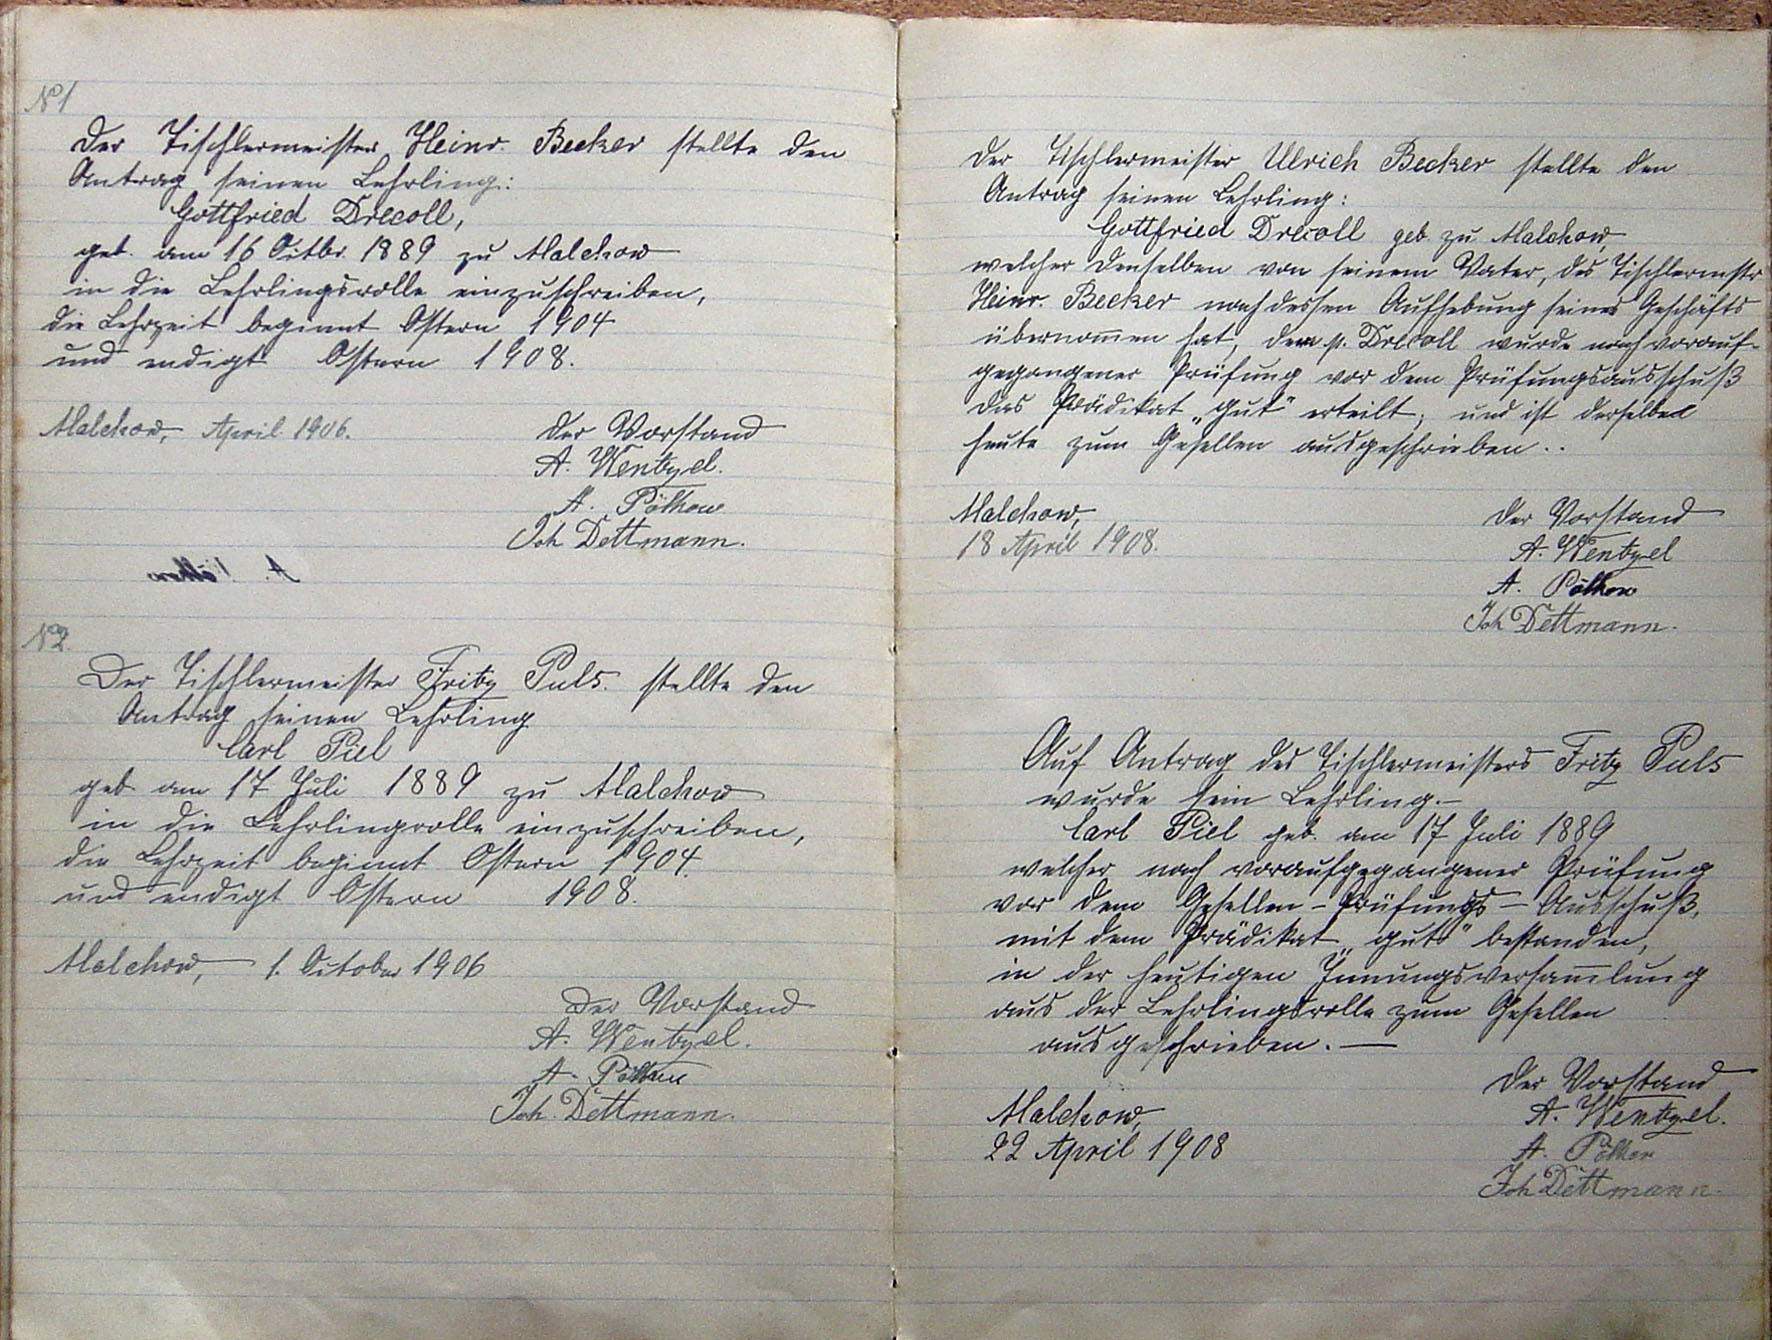 No 1
Der Tischlermeister Heinr. Becker stellte den
Antrag seinen Lehrling:
Gottfried Drecoll,
geb. am 16 Octbr. 1889 zu Malchow
in die Lehrlingsrolle einzuschreiben,
die Lehrzeit beginnt Ostern 1904
und endigt Ostern 1908.
Malchow, April 1906.
Der Vorstand
A. Wentzel.
A. Pölkow
Joh Dettmann.
No 2.
Der Tischlermeister Fritz Puls. stellte den
Antrag seinen Lehrling
Carl Piel
geb. am 17 Juli 1889 zu Malchow
in die Lehrlingrolle einzuschreiben,
die Lehrzeit beginnt Ostern 1904.
und endigt Ostern 1908.
Malchow, 1. October 1906
Der Vorstand
A. Wentzel.
A. Pölkow
Joh. Dettmann.
Der Tischlermeister Ulrich Becker stellte den
Antrag seinen Lehrling:
Gottfried Drecoll geb. zu Malchow,
welcher denselben von seinem Vater, des Tischlermstr
Heinr. Becker nach dessen Aufhebung seines Geschäfts
übernom̄en hat, dem p. Drecoll wurde nach vorauf-
gegangener Prüfung vor dem Prüfungsausschuß
das Prädikat „gut" erteilt, und ist derselbe
heute zum Gesellen ausgeschrieben..
Malchow,
18 April 1908.
Der Vorstand
A. Wentzel
A. Pölkow
Joh Dettmann.
Auf Antrag des Tischlermeisters Fritz Puls
wurde sein Lehrling.—
Carl Piel geb. am 17 Juli 1889
welcher nach voraufgegangener Prüfung
vor dem Gesellen-Prüfungs-Ausschuß,
mit dem Prädikat „gut" bestanden,
in der heutigen Innungsversam̄lung
aus der Lehrlingsrolle zum Gesellen
ausgeschrieben.—
Der Vorstand
Malchow,
22 April 1908
A. Wentzel.
A. Pölkow
Joh Dettmann.